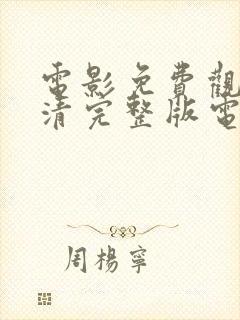 電影免費觀
清完整版電
周楊寧